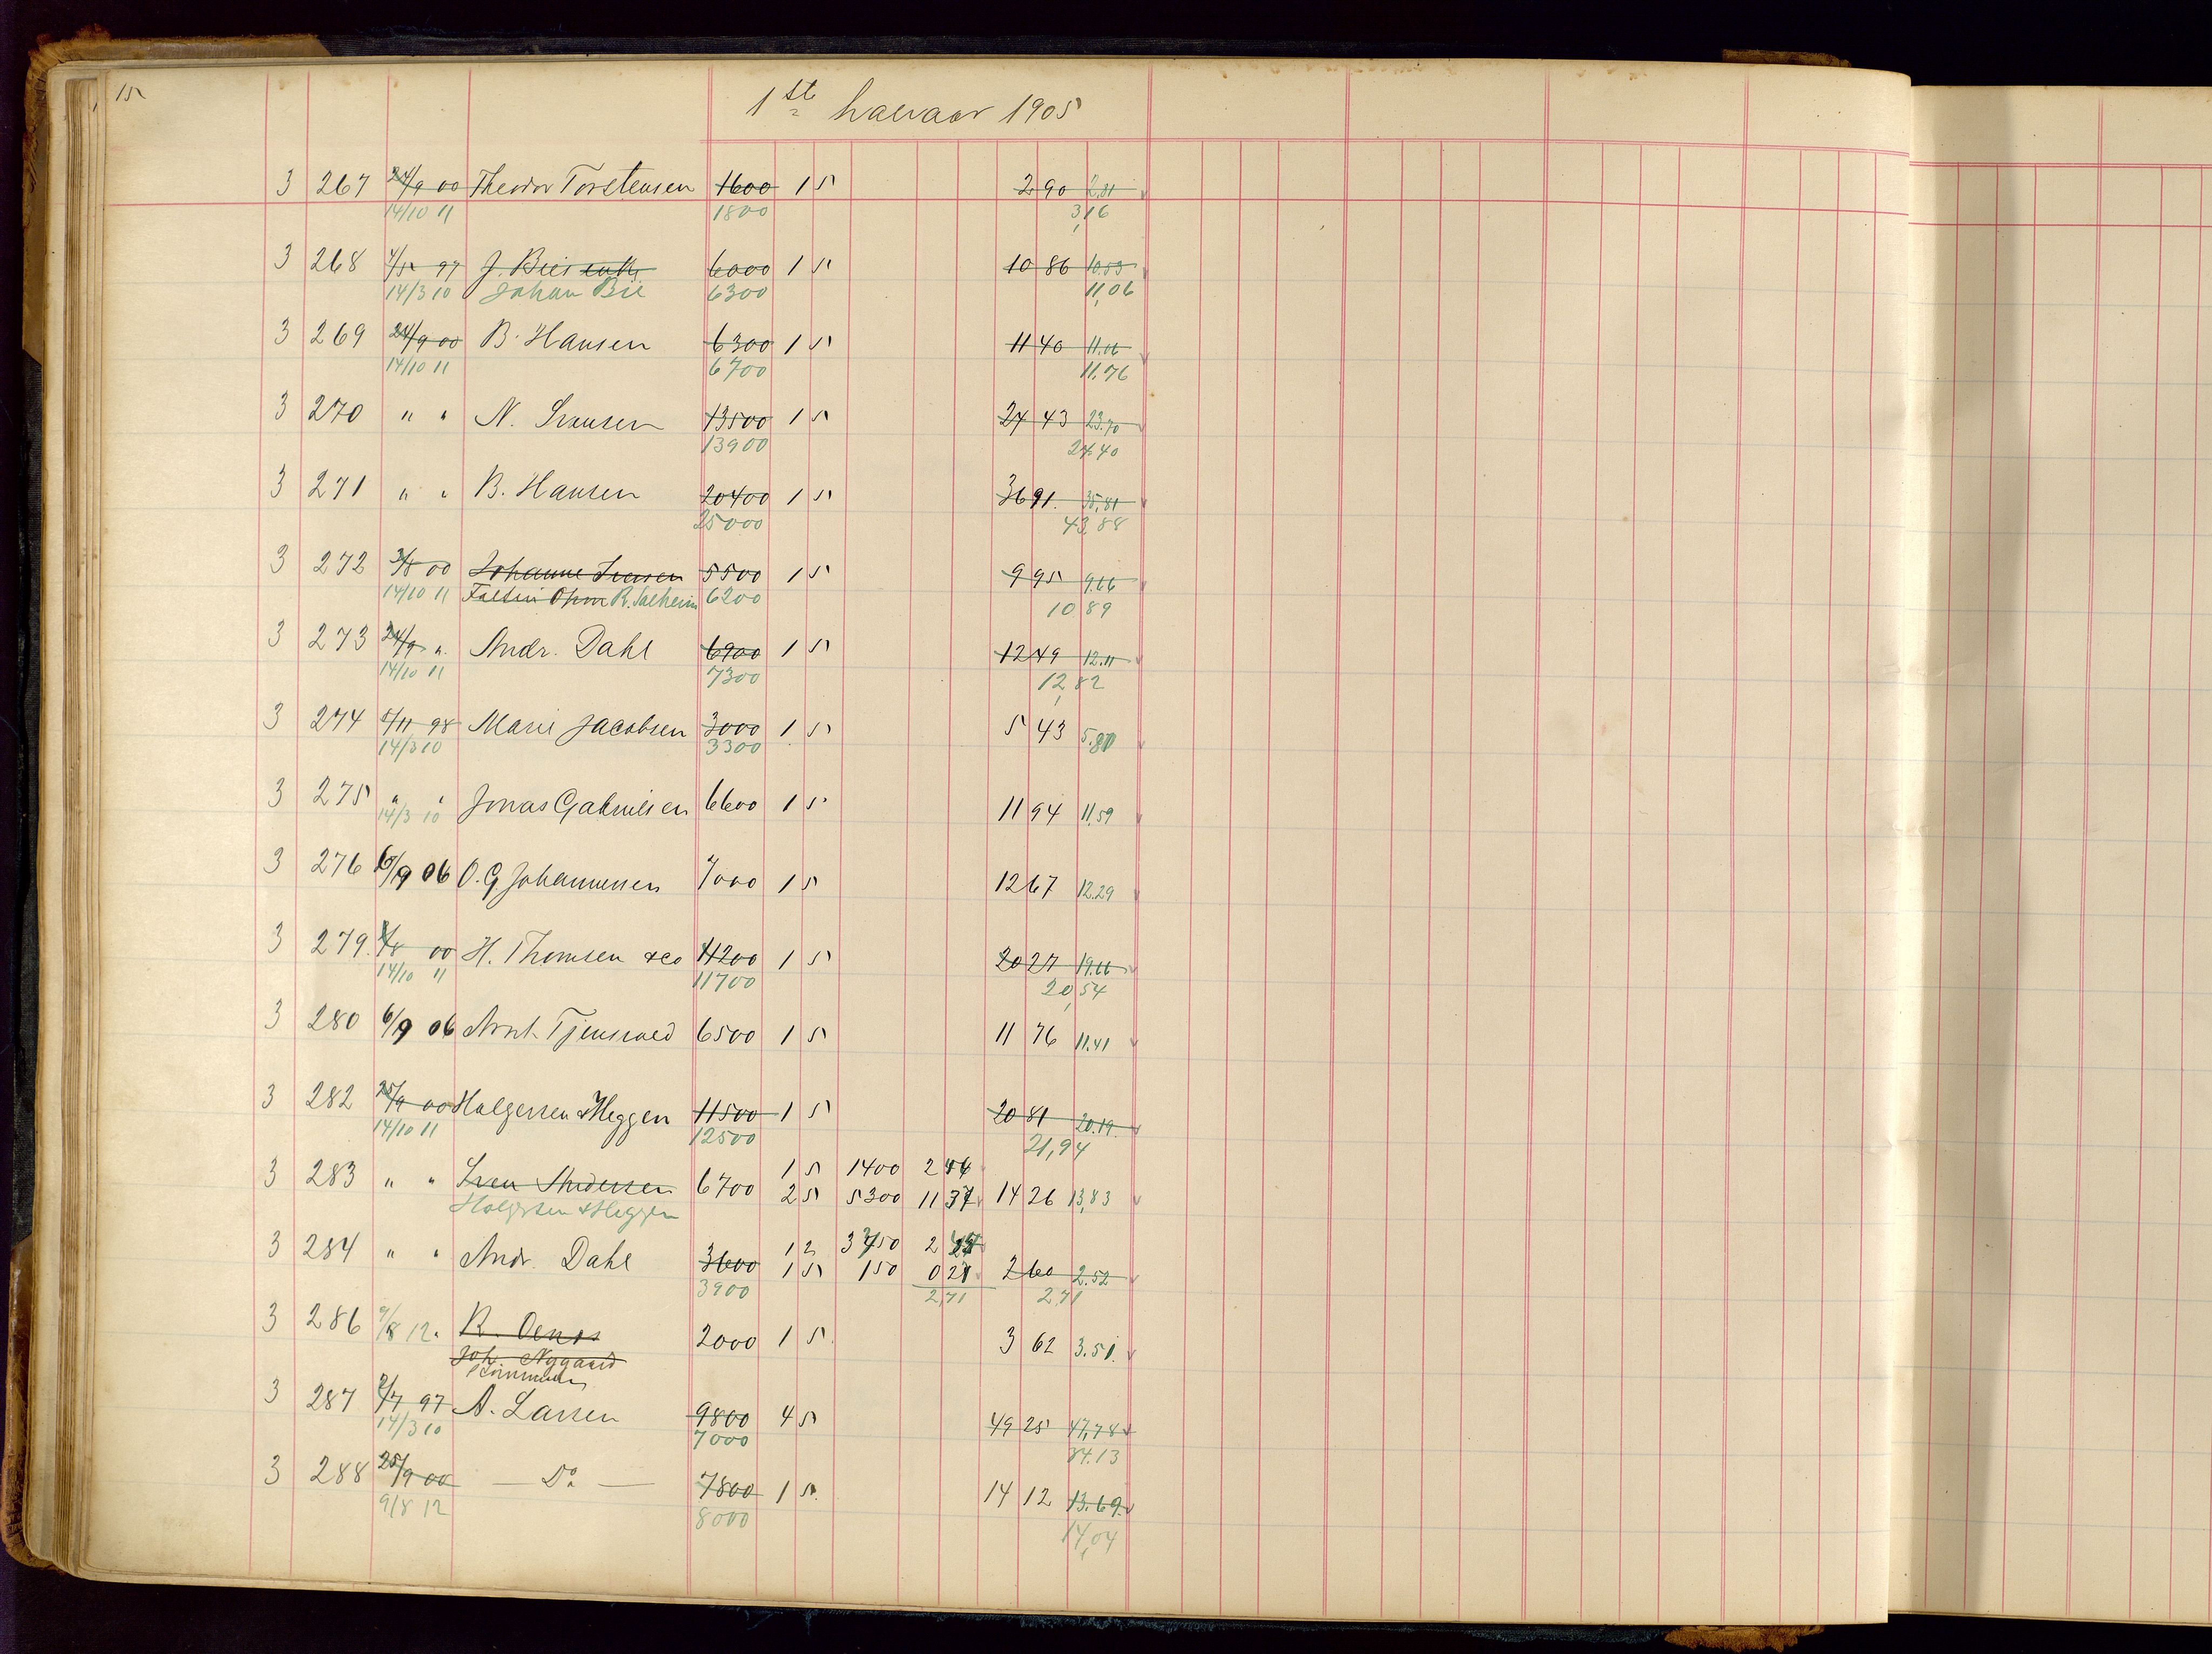 15
1st halvaar 1905
3 267 24/9 00 Theodor Torstensen 1600 1 5 2 90 2,81
14/10 11 1800 3,16
3 268 97 J. Bies enke 6000 1 5 10 86 10.53
14/3 10 Johan Bie 6300 11,06
3 269 24/9 00 B. Hansen 6300 1 5 11 40 11.06
14/10 11 6700 11,76
3 270 " " N. 13500 1 5 24 43 23.70
13900 24,40
3 271 " " B. Hansen 20400 1 5 36 91. 35,81
25000 43,88
3 272 3/8 00 Johanne Iversen 5500 1 5 9 95 9.66
14/10 11 R. Salheim 6200 10 89
3 273 24/9 " Andr. Dahl 6900 1 5 12 49 12.11
14/10 11 7300 12,82
3 274 5/11 98 Marie Jacobsen 3000 1 5 5 43 5.80
14/3 10 3300
3 275 " " Jonas Gabrielsen 6600 1 5 11 94 11,59
14/3 10
3 276 6/9 06 O. G. Johannessen 7000 1 5 12 67 12.29
3 279. 3/8 00 H. Thomsen & Co 11200 1 5 20 27 19.66
14/10 11 11700 20,54
3 280 6/9 06 Arnt Tjensvold 6500 1 5 11 76 11.41
3 282 25/9 00 Holgersen & Heggen 11500 1 5 20 81 20.19
14/10 11 12500 21,94
3 283 " " Sven Andersen 6700 1 5 1400 2 46
2 5 5300 11 37 14 26 13,83
Holgersen & Heggen
3 284 " " Andr. Dahl 3600 1 2 3750 2
1 5 150 0 27 2 60 2.52
3900 2,71 2,71
3 286 9/8 12 R. 2000 1 5 3 62 3.51.
Joh. Nygaard
Kommunen
3 287 2/7 97 A. Larsen 9800 4 5 49 25 47,78
14/3 10 7000 34.13
3 288 25/9 00 — Do — 7800 1 5 14 12 13.69
9/8 12 8000 14,04